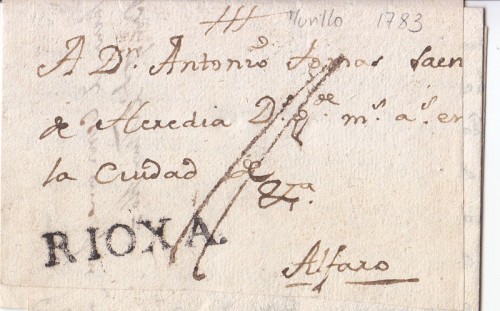 Murillo 1783
A Dn. Antonio Tomas Saen
de Heredia Ds. gde. ms. as. en
la Ciudad de
RIOXA
Alfaro